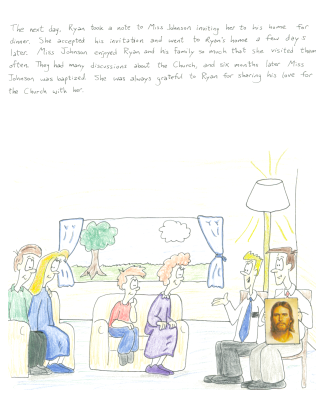 The next day, Ryan took a note to Miss Johnson inviting her to his home for
dinner. She accepted his invitation and went to Ryan's home a few days
later. Miss Johnson enjoyed Ryan and his family so much that she visited them
often. They had many discussions about the Church, and six months later Miss
Johnson was baptized. She was always grateful to Ryan for sharing his love for
the Church with her.